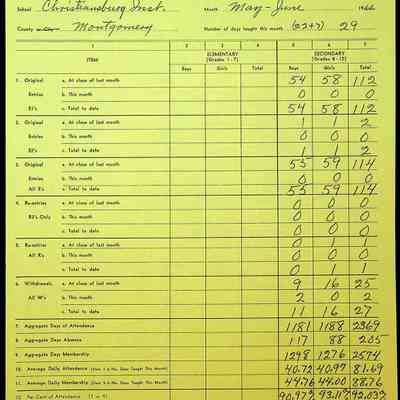 School Christiansburg Inst. Month May-June 1966
County or City Montgomery Number of days taught this month (22+7) 29
1 2 3 4 5 6 7
ITEM ELEMENTARY (Grades 1-7) SECONDARY (Grades 8-12)
Boys Girls Total Boys Girls Total
1. Original a. At close of last month 54 58 112
Entries b. This month 0 0 0
E1's c. Total to date 54 58 112
2. Original a. At close of last month 1 1 2
Entries b. This month 0 0 0
E2's c. Total to date 1 1 2
3. Original a. At close of last month 55 59 114
Entries b. This month 0 0 0
All E's c. Total to date 55 59 114
4. Re-entries a. At close of last month 0 0 0
R2's Only b. This month 0 0 0
c. Total to date 0 0 0
5. Re-entries a. At close of last month 0 1 1
All R's b. This month 0 0 0
c. Total to date 0 1 1
6. Withdrawals, a. At close of last month 9 16 25
All W's b. This month 2 0 2
c. Total to date 11 16 27
7. Aggregate Days of Attendance 1181 1188 2369
8. Aggregate Days Absence 117 88 205
9. Aggregate Days Membership 1298 1276 2574
10. Average Daily Attendance 40.72 40.97 81.69
11. Average Daily Membership 44.76 44.00 88.76
12. Per Cent of Attendance 90.97% 93.11% 92.03%